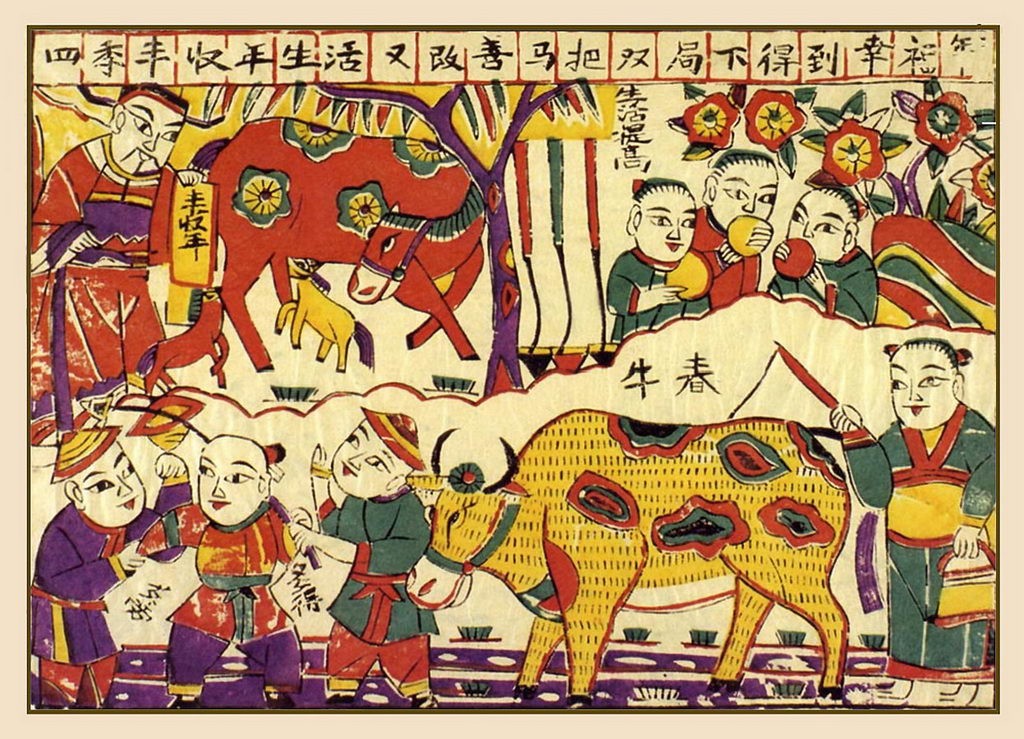 四季丰收年生活又改善马把双局下得到幸福年
丰收年
生活提高
春牛